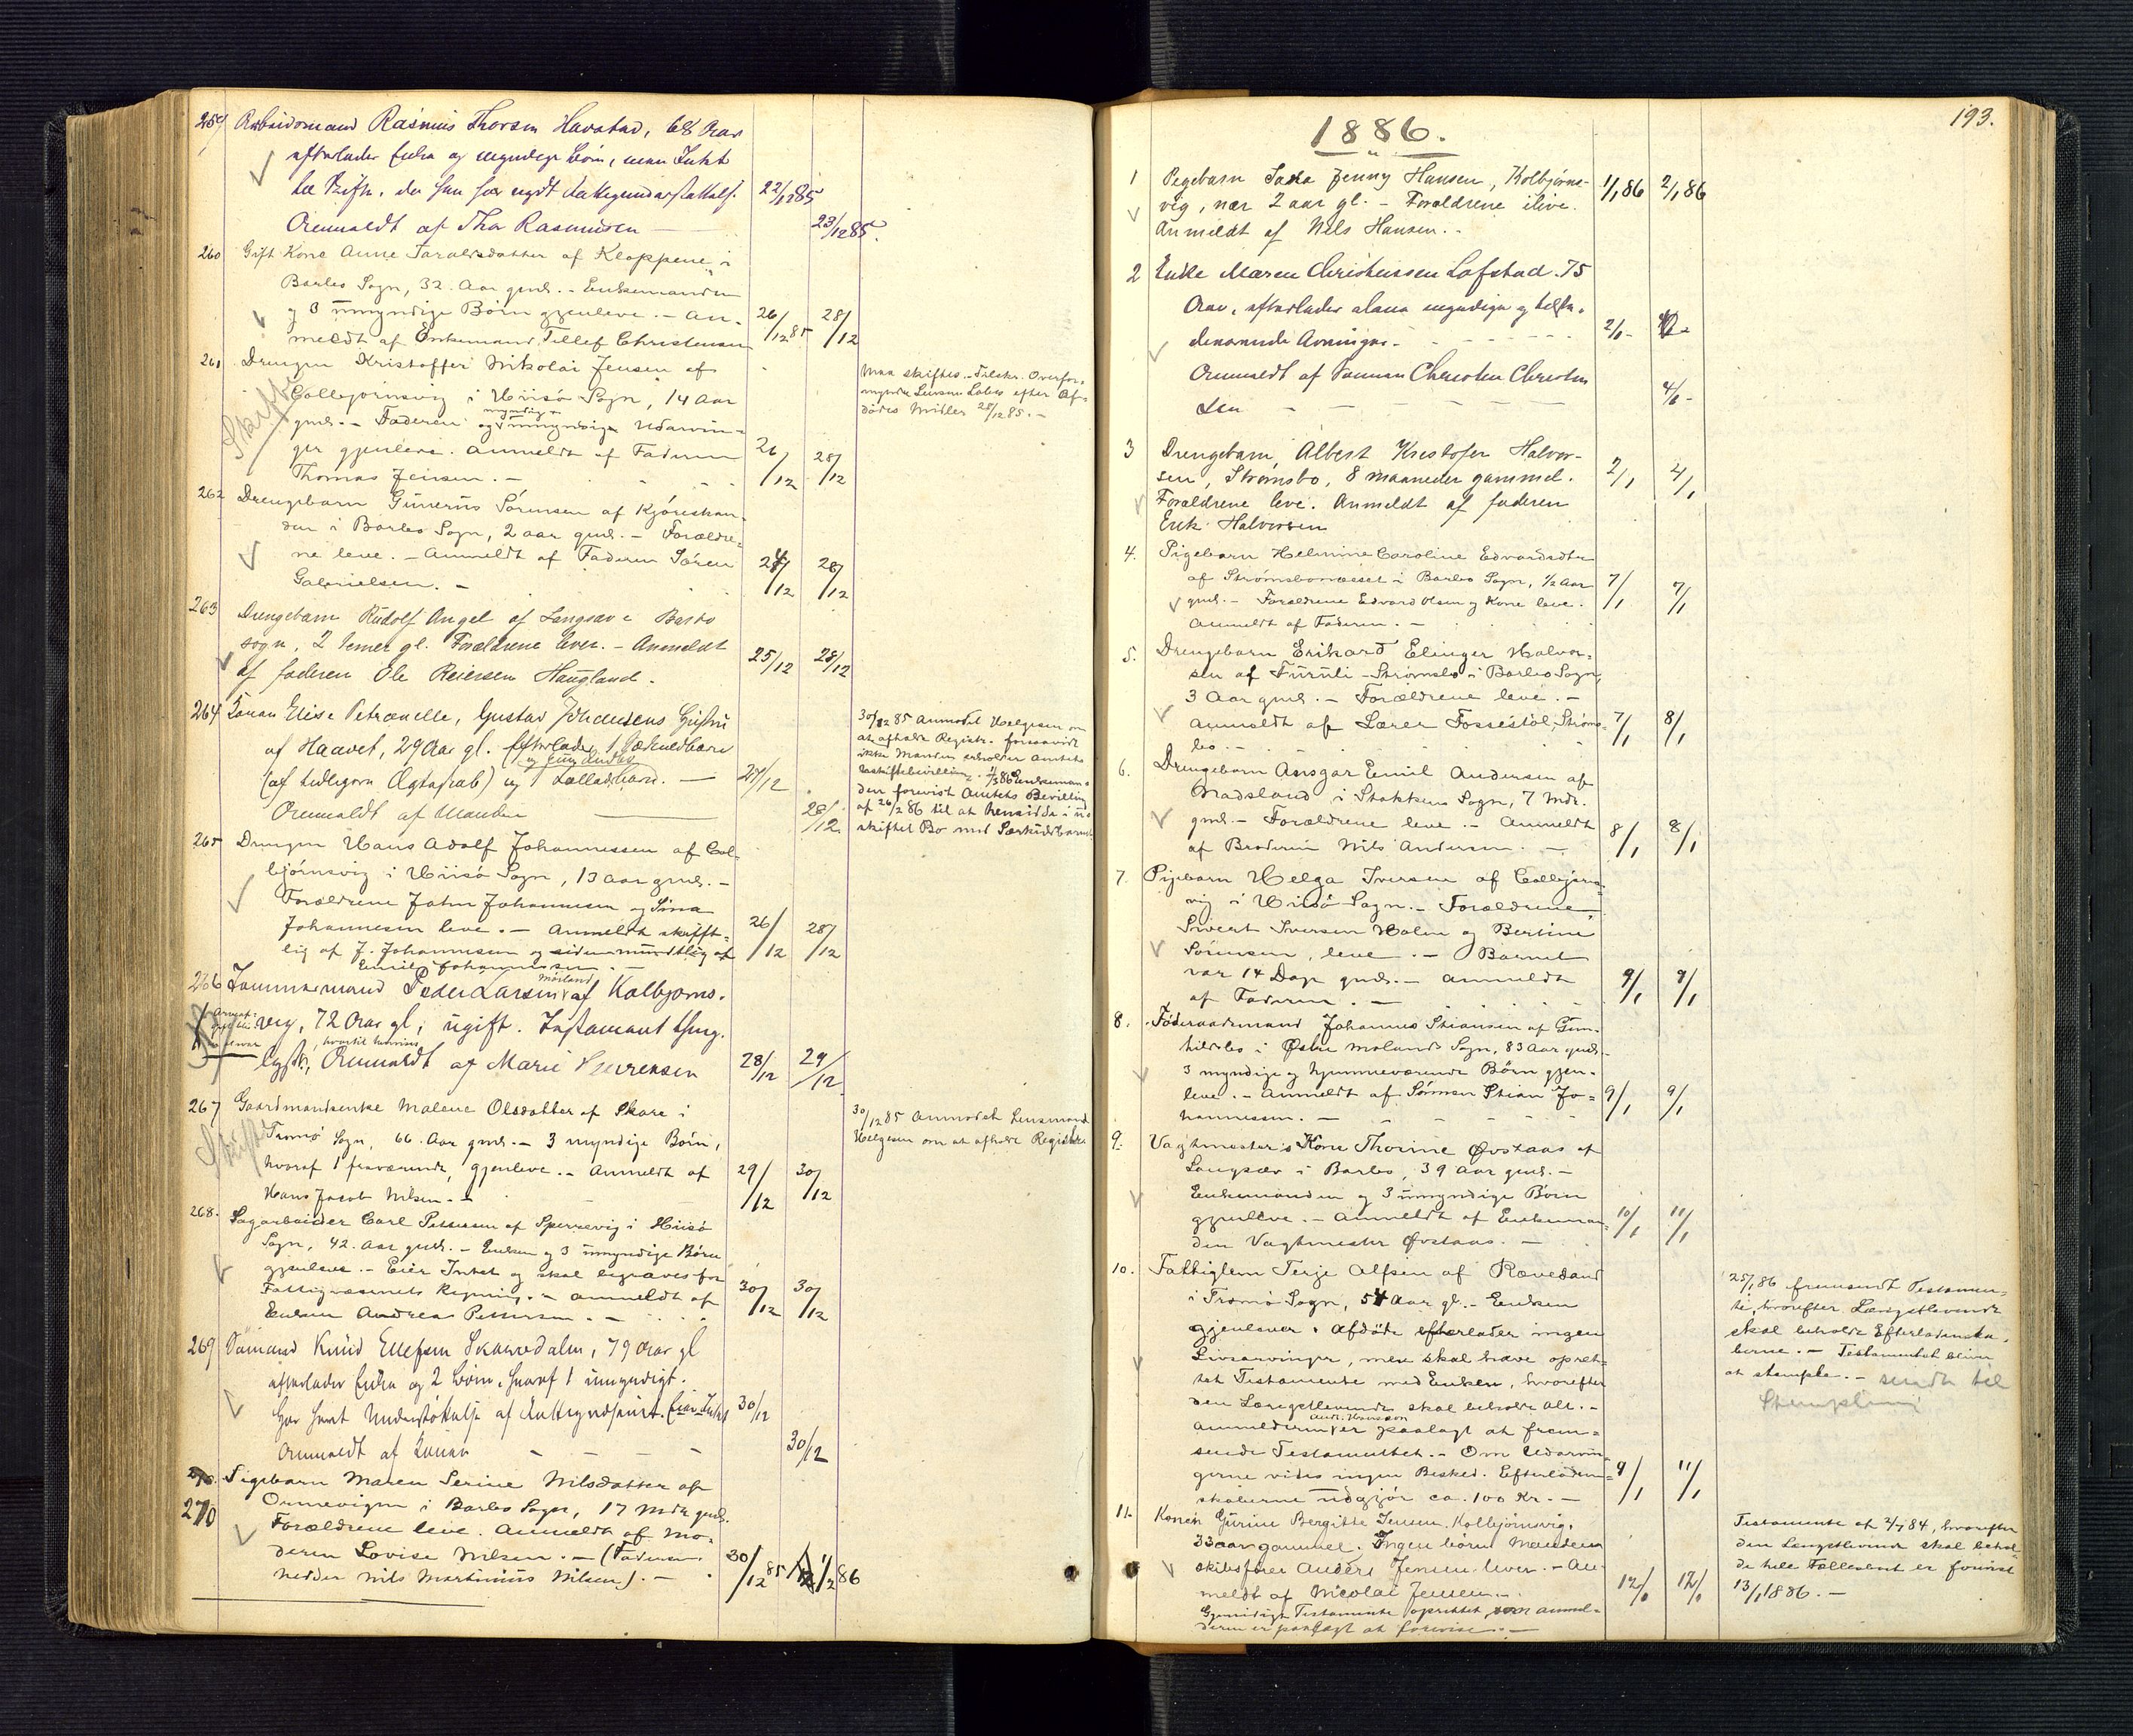 259 Arbeidsmand Rasmus Thorsen Havstad, 68 Aar
efterlader Enke og myndige Børn, men Intet
22/12 85
Anmeldt af Thor Rasmussen
23/12 85.
260 Gift Kone Anne Taraldsdatter af Kloppene i
Barbo Sogn, 32 Aar gml. - Enkemanden
og 3 umyndige Børn gjenleve. - An-
meldt af Enkemand Tellef Christensen
26/12 85 28/12
261 Drengen Kristoffer Nikolai Jensen af
Collbjørnsvig i Hiisø Sogn, 14 Aar
gml. - Faderen og myndige umyndige Udarvin-
ger gjenleve. Anmeldt af Faderen
Thomas Jensen. -
26/12 28/12
Skifte
Maa skiftes. - Tilskr. Overfor-
mynder
dødes Midler 28/12 85. -
262 Drengebarn Gunerius Sørensen af Kjøreskan-
den i Barbo Sogn, 2 aar gml. - Forældre-
ne leve. - Anmeldt af Faderen Søren
Gabrielsen. -
28/12
263 Drengebarn Rudolf Angel af Langsæv i Barbo
sogn, 2 gl. Forældrene lever. - Anmeldt
af faderen Ole Reiersen Haugland.
25/12 28/12
264 Konen Elise Petronelle, Gustav
af Haavet, 29 Aar gl. Efterlader 1
(af tidligere Ægteskab) og 1 Fælledsbarn. -
Anmeldt af Manden
27/12
28/12
30/12 85 Anmodet Helgesen om
at afholde Registr. forsaavidt
ikke Manden erholder Amtets
Enkeman-
den forevist Amtets Bevilling
af 26/2 86 til at hensidde i u-
skiftet Bo med Særkuldsbarnet
265 Drengen Hans Adolf Johannessen af Col-
bjørnsvig i Hiisø Sogn, 13 aar gml. -
Forældrene John Johannesen og Sina
Johannesen leve. - Anmeldt skrift-
lig af J. Johannesen og siden mundtlig af
Emil Johannesen. -
26/12 28/12
266 Tømmermand Peder Larsen Mørland af Kolbjørns-
vig, 72 Aar gl, ugift.
Anmeldt af Marie
28/12 29/12
267 Gaardmandsenke Malene Olsdatter af Skare i
Tromø Sogn, 66 Aar gml. - 3 myndige Børn,
hvoraf 1 fraværende, gjenleve. - Anmeldt af
Hans Jacob Nilsen. -
29/12 30/12
Skifte
30/12 85 Anmodet Lensmand
Helgesen om at afholde Registr.
268. Sagarbeider Carl Pettersen af Spervevig i Hiisø
Sogn, 42 Aar gml. - Enken og 3 umyndige Børn
gjenleve. - Eier Intet og skal begraves for
Fattigvæsenets Regning. - Anmeldt af
Enken Andrea Pettersen. -
30/12 30/12
269 Sømand Knud Ellefsen Skarvedalen, 79 Aar gl
efterlader Enke og 2 Børn, hvoraf 1 umyndigt.
Har havt Understøttelse af Eier Intet
Anmeldt af Konen
30/12
30/12
270 Pigebarn Maren Serine Nilsdatter af
Ormevigen i Barbo Sogn, 17 Mdr gml.
Forældrene leve. Anmeldt af Mo-
deren Lovise Nilsen. - (Faderen
hedder Nils Martinius Nilsen). -
30/12 85 1/2 86
193.
1886.
1 Pigebarn Jenny Hansen, Kolbjørns-
vig, nær 2 aar gl. - Forældrene ilive.
Anmeldt af Nils Hansen. -
1/1 86 2/1 86
2 Enke Maren Christensen Lofstad. 75
Aar, efterlader alene myndige og tilste-
deværende Arvinger. -
Anmeldt af Sønnen Christen Christen
sen
2/1 -
4/1 -
3 Drengebarn Albert Kristofer Halvor-
sen, Strømsbo, 8 maaneder gammel.
Forældrene leve. Anmeldt af faderen
Erik Halvorsen
2/1 4/1
4. Pigebarn Helmine Caroline Edvardsdtr
af Strømsbonæset i Barbo Sogn, 1/2 Aar
gml. - Forældrene Edvard Olsen og Kone leve.
Anmeldt af Faderen. -
7/1 7/1
5. Drengebarn Erikard Elinger Halvor-
sen af Furuli - Strømsbo i Barbo Sogn,
3 Aar gml. - Forældrene leve. -
Anmeldt af Lærer Fossestøl, Strøms-
bo. -
7/1 8/1
6. Drengebarn Ansgar Emil Andersen af
Madsland i Stokken Sogn, 7 Mdr.
gml. - Forældrene leve. - Anmeldt
af Broderen Nils Andersen. -
8/1 8/1
7. Pigebarn Helga Iversen af Colbjørns-
vig i Hiisø Sogn. - Forældrene,
Sivert Iversen Holm og Bertine
Sørensen, leve. - Barnet
var 14 Dage gml. - Anmeldt
af Faderen. -
9/1 9/1
8. Føderaadsmand Johannes Stiansen af Gun-
hildsbo i Østre Molands Sogn, 83 Aar gml. -
3 myndige og hjemmeværende Børn gjen-
leve. - Anmeldt af Sønnen Stian Jo-
hannessen. -
9/1 9/1
9. Vagtmester's Kone Thorine Øvstaas af
Langsæv i Barbo, 39 Aar gml. -
Enkemanden og 3 umyndige Børn
gjenleve. - Anmeldt af Enkeman-
den Vagtmester Øvstaas. -
10/1 11/1
10. Fattiglem Terje Alfsen af Rævesand
i Tromø Sogn, 54 Aar gl. - Enken
gjenlever. Afdøde efterlader ingen
Livsarvinger, men skal have opret-
tet Testamente med Enken, hvorefter
den Længstlevende skal beholde Alt. -
Anmelderen er paalagt at frem-
sende Testamentet. - Om Udarvin-
gerne vides ingen Besked. Efterladen-
skaberne udgjør ca. 100 Kr. -
9/1 11/1
25/1 86 fremsendt Testamen-
te, hvorefter Længstlevende
skal beholde Efterladenska-
berne. - Testamentet bliver
at stemple. - sendt til
Stempling
11. Konen Gurine Bergitte Jensen, Kolbjørnsvig,
33 aar gammel. Ingen børn Manden
skibsfører Anders Jensen lever. - An-
meldt af Nicolai Jensen. -
Gjensidigt Testamente oprettet, som anmel-
deren er paalagt at forevise. -
12/1 12/1
Testamente af 2/7 84, hvorefter
den Længstlevende skal behol-
de hele Fællesboet er forevist
13/1 1886. -